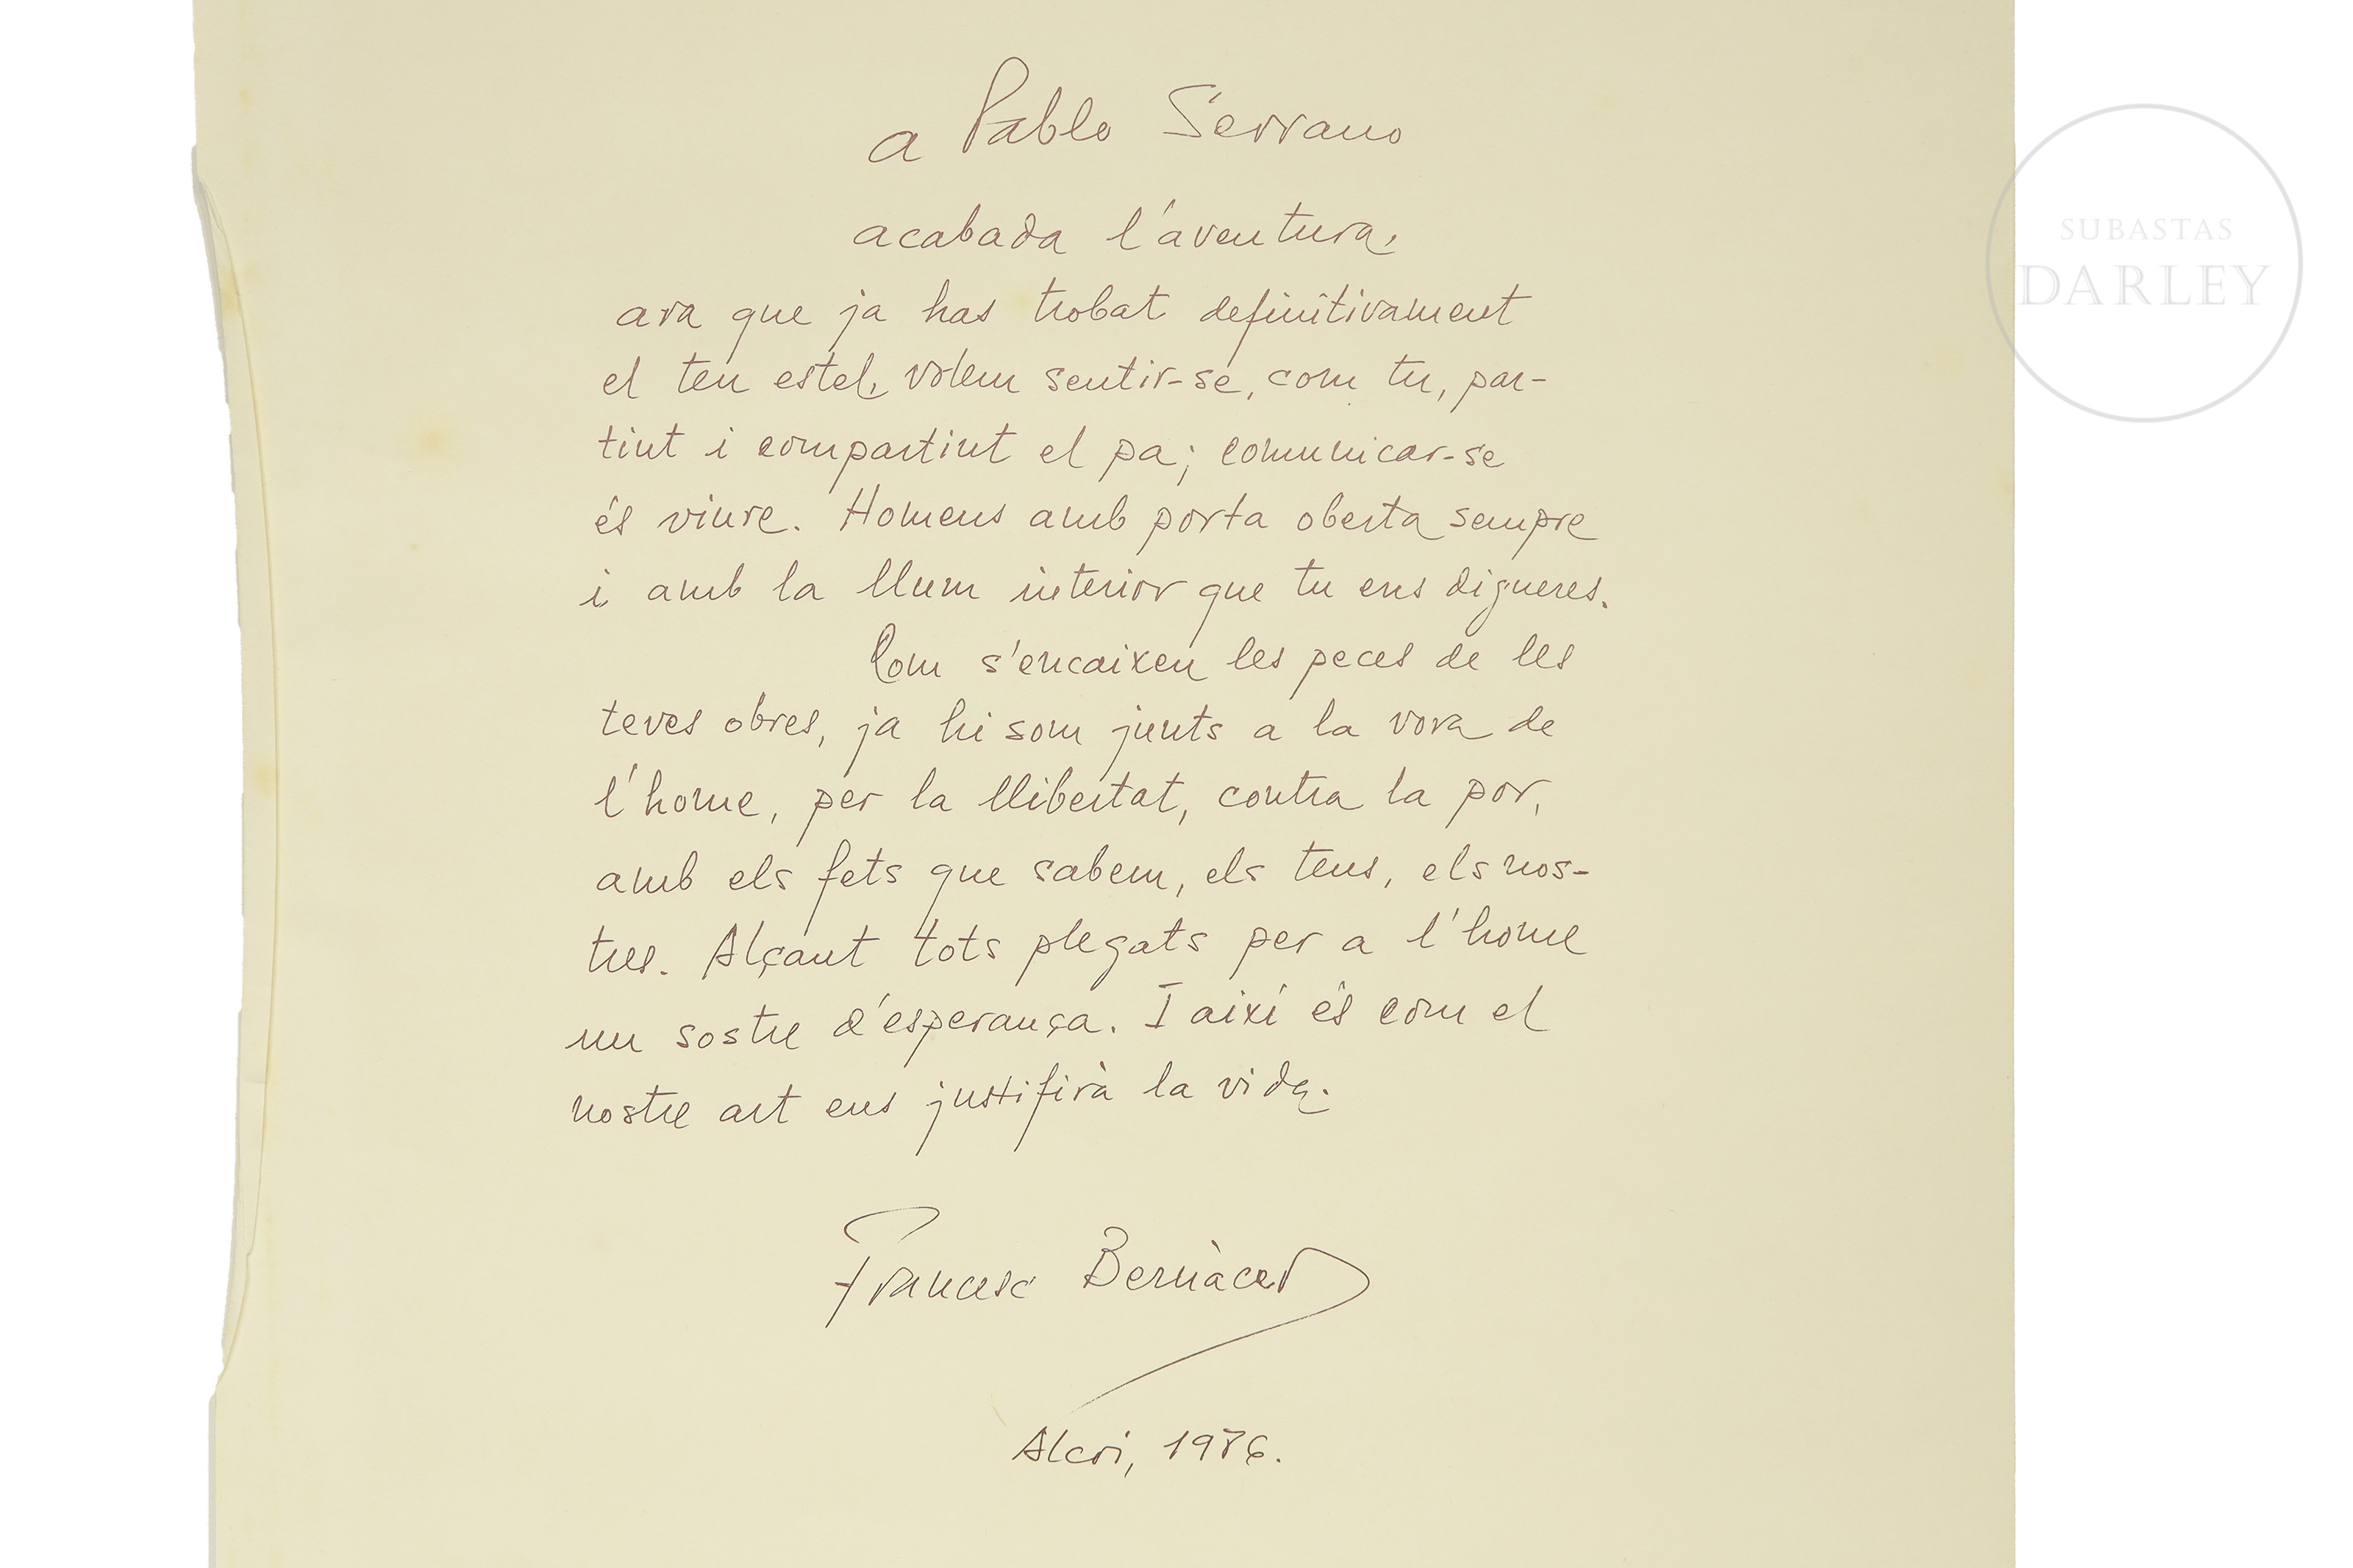 a Pablo Serrano
acabada l'aventura,
ara que ja has trobat definitivament
el teu estel, volem sentir-se, com tu, par-
tint i compartint el pa; comunicar-se
és viure. Homens amb porta oberta sempre
i amb la llum interior que tu ens digueres.
Com s'encaixen les peces de les
teves obres, ja hi som junts a la vora de
l'home, per la llibertat, contra la por,
amb els fets que sabem, els teus, els nos-
tres. Alçant tots plegats per a l'home
un sostre d'esperança. I així és com el
nostre art ens justifirà la vida.
Francesc Bernàcer
Alcoi, 1986.
SUBASTAS
DARLEY